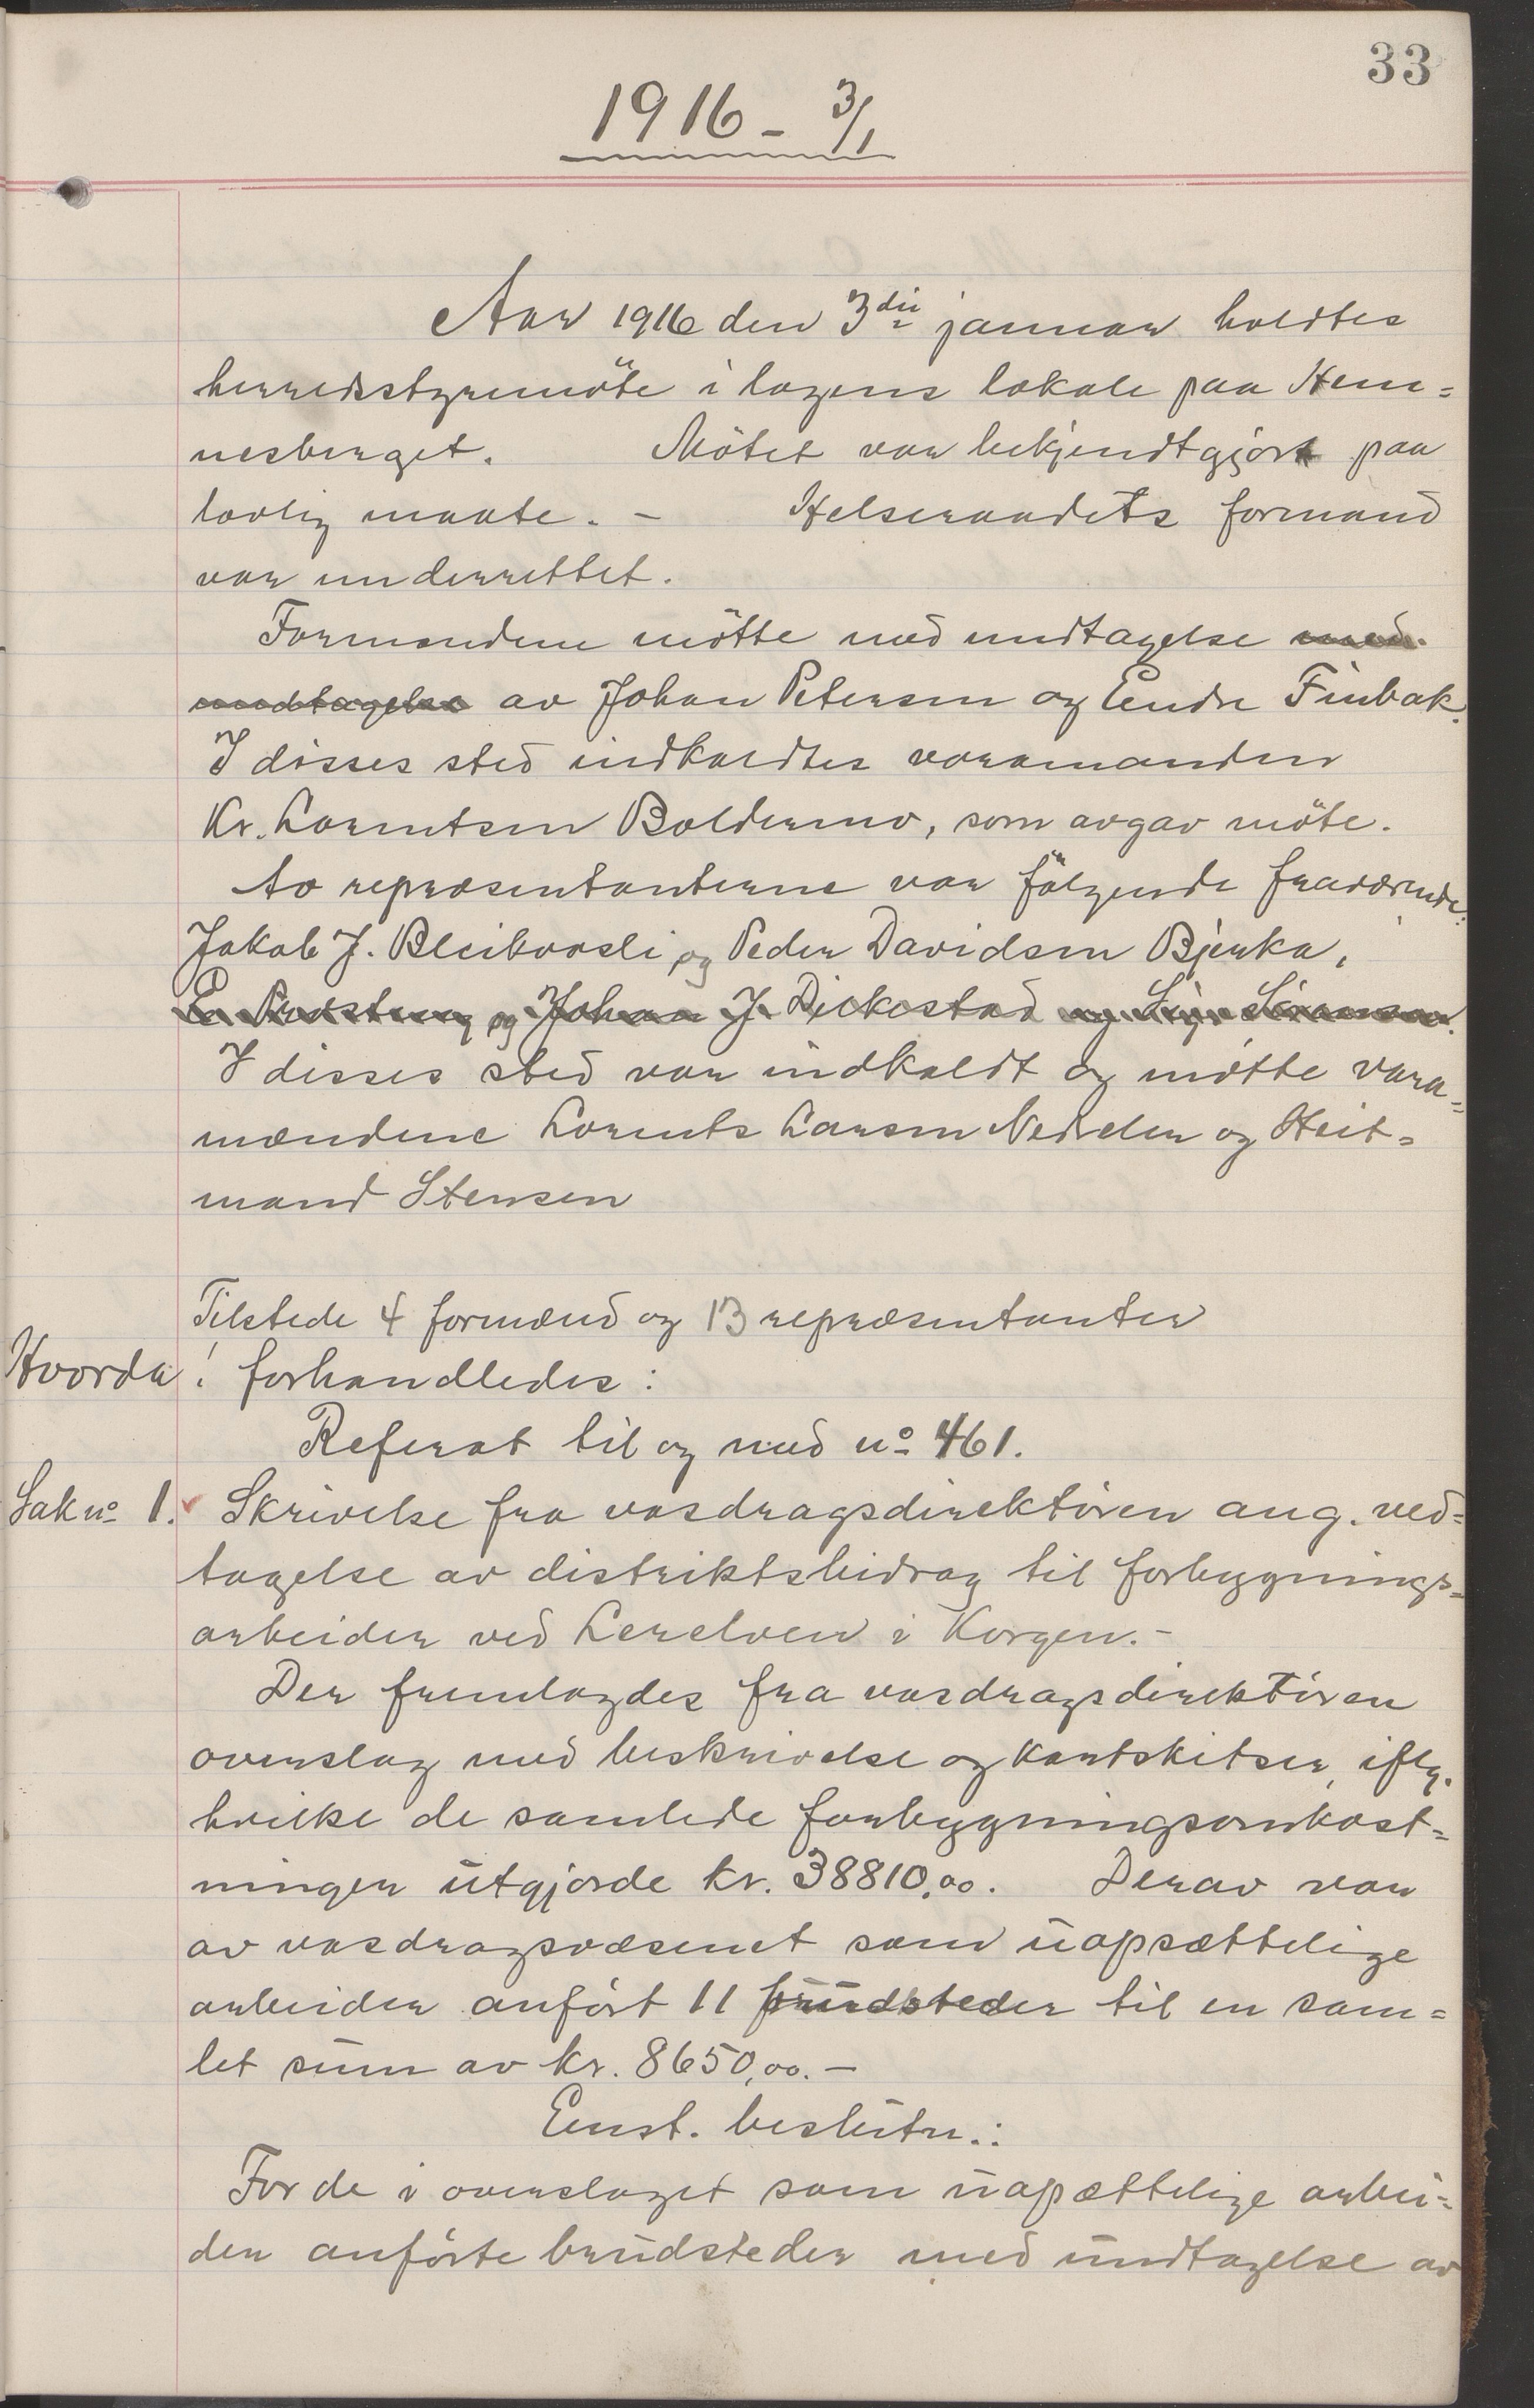 33
1916 - 3/1
Aar 1916 den 3die januar holdtes
herredsstyremöte i logens lokale paa Hem=
nesberget. Mötet var bekjendtgjort paa
lovlig maate. - Helseraadets formand
var underrettet.
Formændene mötte med undtagelse med
undtagelse av Johan Petersen og Endre Finbak.
I disses sted indkaldtes varamanden
Kr. Lorentsen Boldermo, som avgav möte.
Av repræsentanterne var fölgende fraværende:
Jakob J. Bleikvasli og Peder Davidsen Bjerka,
og Johan J. Dickestad og
I disses sted var indkaldt og mötte vara=
mændene Lorents Larsen Nedreler og Heit=
mand Stensen
Tilstede 4 formænd og 13 repræsentanter
Hvorda! forhandledes:
Referat til og med no 461.
Sak no 1. Skrivelse fra vasdragsdirektören ang. ved=
tagelse av distriktsbidrag til forbygnings=
arbeider ved Lerelven i Korgen.-
Der fremlagdes fra vasdragsdirektören
overslag med beskrivelse og kartskitser, iflg.
hvilke de samlede forbygningsomkost=
ninger utgjorde kr. 38810,00. Derav var
av vasdragsvæsenet som uopsættelige
arbeider anfört 11 brudsteder til en sam=
let sum av kr. 8650,00. -
Enst. beslutn.:
For de i overslaget som uopsættelige arbei=
der anförte brudsteder med undtagelse av